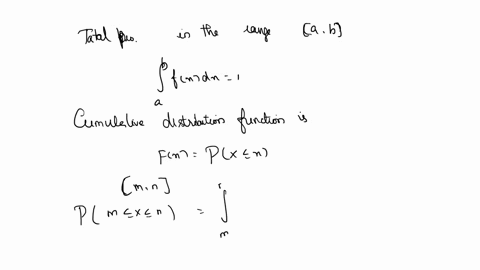 Total pro. is the range [a, b]
∫ₐᵇ f(n)dn = 1
Cumulative distribution function is
F(n) = P(x ≤ n)
[m, n]
P(m ≤ x ≤ n) = ∫ₘ